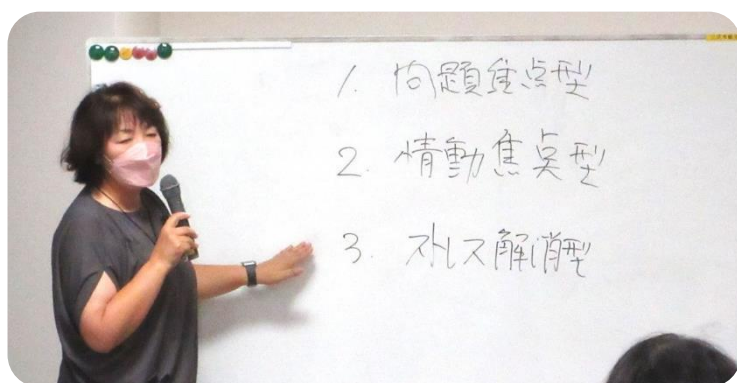 1. 問題重点型
2. 情動焦点型
3. ストレス解消型